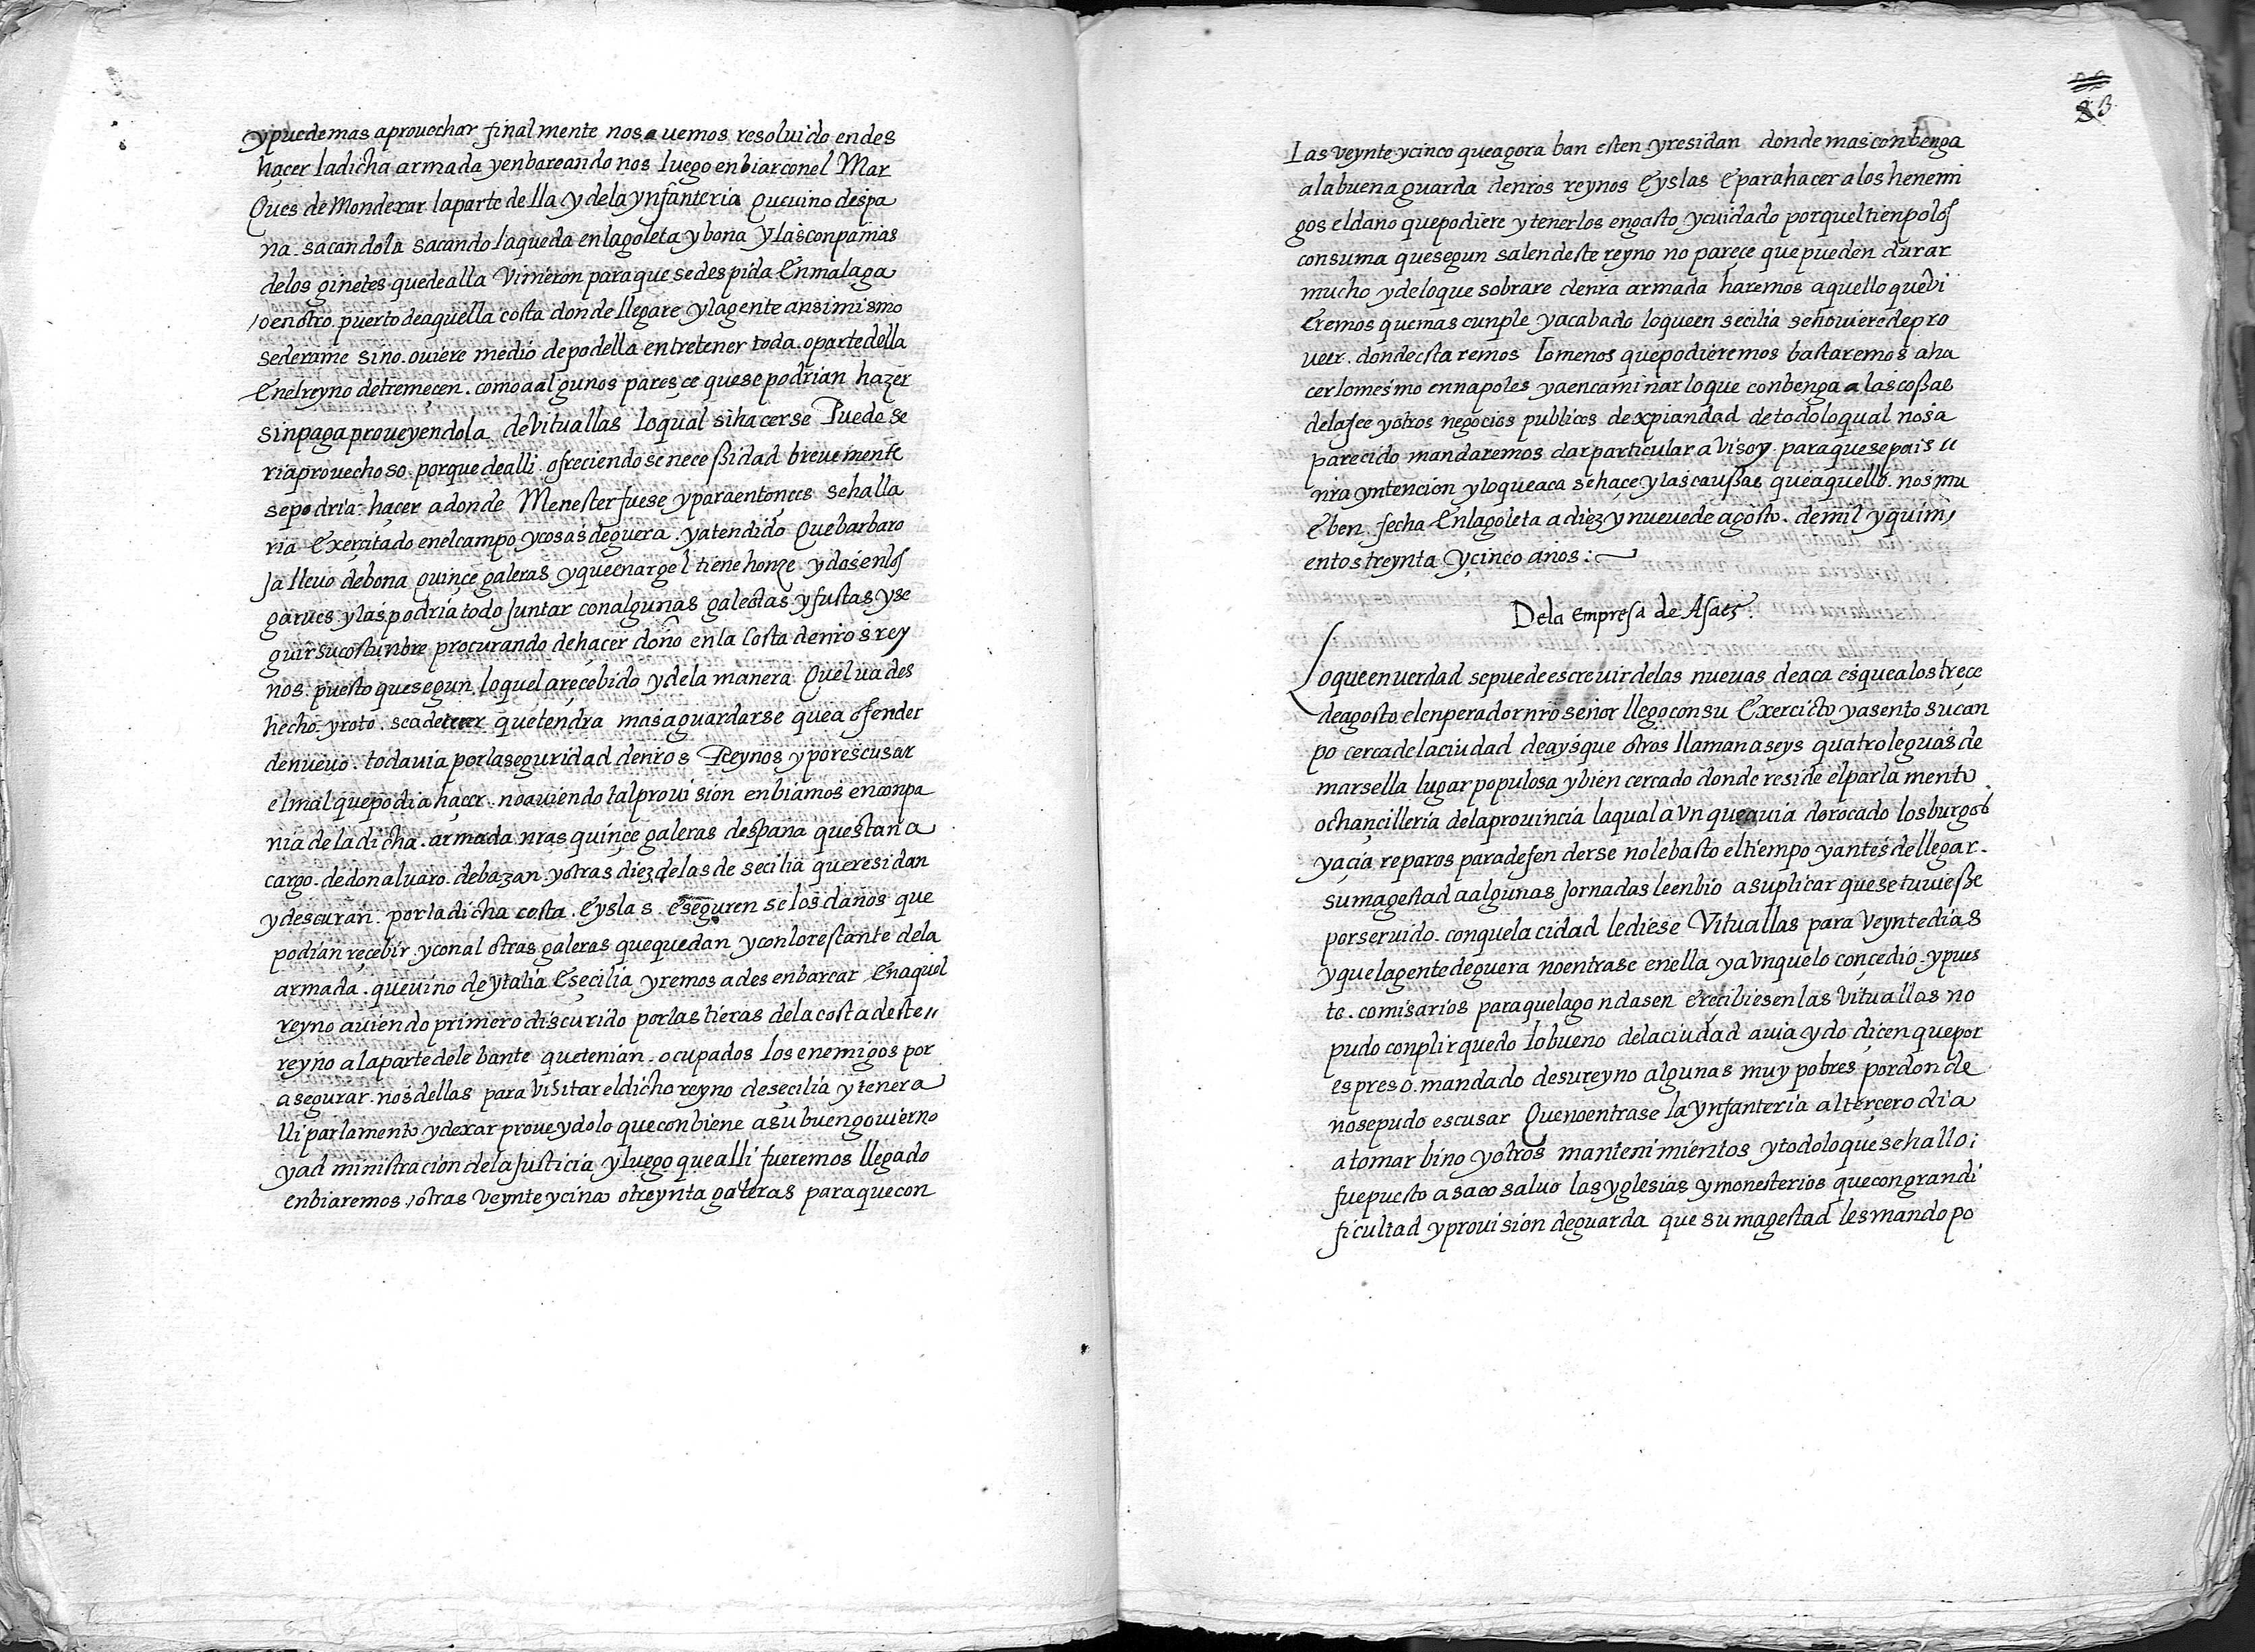 y puede mas aprovechar finalmente nos avemos resoluido en des
haçer la dicha armada y enbarcandonos luego enbiar con el Mar
Ques de Mondexar la parte della y de la ynfanteria Que vino despa
na sacandola sacando la queda en la goleta y bona y las conpanias
de los ginetes que de alla Vinieron para que se despida En malaga
o en otro puerto de aquella costa donde llegare y la gente ansimismo
se derame si no oviere medio de podella entretener toda o parte della
En el reyno de tremeçen como a algunos paresçe que se podrian hazer
sin paga proveyendola de Vituallas lo qual si hacerse Puede se
ria provechoso porque de alli ofreciendose neceßidad brevemente
se podria haçer a donde Menester fuese y para entonçes se halla
ria Exerçitado en el campo y cosas de guera y atendido Que barbaro
Ja llevo de bona quinçe galeras y que en argel tiene honze y dos en los
garves y las podria todo Juntar con algunas galeotas y fustas y se
guir su costunbre procurando de haçer doño en la Costa de nros rey
nos puesto que segun lo quel a reçebido y de la manera Quel va des
hecho y roto se a de creer que tendra mas a guardarse que a ofender
de nuevo todavia por la seguridad de nros Reynos y por escusar
el mal que podia haçer no aviendo tal provision enbiamos en conpa
nia de la dicha armada nras quinçe galeras despana questan a
cargo de don alvaro de bazan y otras diez de las de secilia que residan
y descuran por la dicha costa Eyslas Eseguren se los daños que
podian reçebir y con al otras galeras que quedan y con lo restante de la
armada que vino de ytalia Eseçilia yremos a desenbarcar En aquel
reyno aviendo primero discurido por las tieras de la costa deste "
reyno a la parte de lebante que tenian ocupados los enemigos por
asegurarnos dellas para Visitar el dicho reyno de secilia y tener a
lli parlamento y dexar proveydo lo que conbiene a su buen govierno
y administraçion de la Justiçia y luego que alli fueremos llegado
enbiaremos otras veynte y cinco o treynta galeras para que con
83
Las veynte y cinco que agora ban esten y residan donde mas conbenga
a la buena guarda de nros reynos Eyslas E para hacer a los henemi
gos el dano que podiere y tenerlos en gasto y cuidado porquel tienpo los
consuma que segun salen deste reyno no pareçe que pueden durar
mucho y de lo que sobrare de nra armada haremos aquello que bi
Eremos que mas cunple y acabado lo que en secilia se hoviere de pro
veer donde estaremos lo menos que podieremos bastaremos a ha
cer lo mesmo en napoles y a encaminar lo que conbenga a las coßas
de la fee y otros negocios publicos de xpiandad de todo lo qual nos a
pareçido mandaremos dar particular aViso y para que sepais "
nra yntencion y lo que aca se haçe y las caußas que a quello nos mu
Eben fecha En la goleta a diez y nueve de agosto de mil y quini
entos treynta y çinco años :~
De la Empresa de Asaes.
Lo que en verdad se puede escrevir de las nuevas de aca es que a los treçe
de agosto el enperador nro señor llego con su Exercicto y asento su can
po cerca de la ciudad de ays que otros llaman aseys quatro leguas de
marsella lugar populosa y bien cercado donde reside el parlamento
o chançilleria de la provincia la qual aVnque avia derocado los burgos
y açia reparos para defenderse no le basto el tiempo y antes de llegar
su magestad a algunas Jornadas le enbio a suplicar que se tuvieße
por servido con que la cidad le diese Vituallas para Veynte dias
y que la gente de guera no entrase en ella y aVnque lo conçedio y pues
to comisarios para que lagondasen E recibiesen las Vituallas no
pudo conplir quedo lo bueno de la ciudad avia ydo diçen que por
espreso mandado de su reyno algunas muy pobres por donde
no se pudo escusar Que no entrase la ynfanteria al terçero dia
a tomar bino y otros mantenimientos y todo lo que se hallo
fue puesto a saco salvo las yglesias y monesterios que con gran di
ficultad y provision de guarda que su magestad les mando po